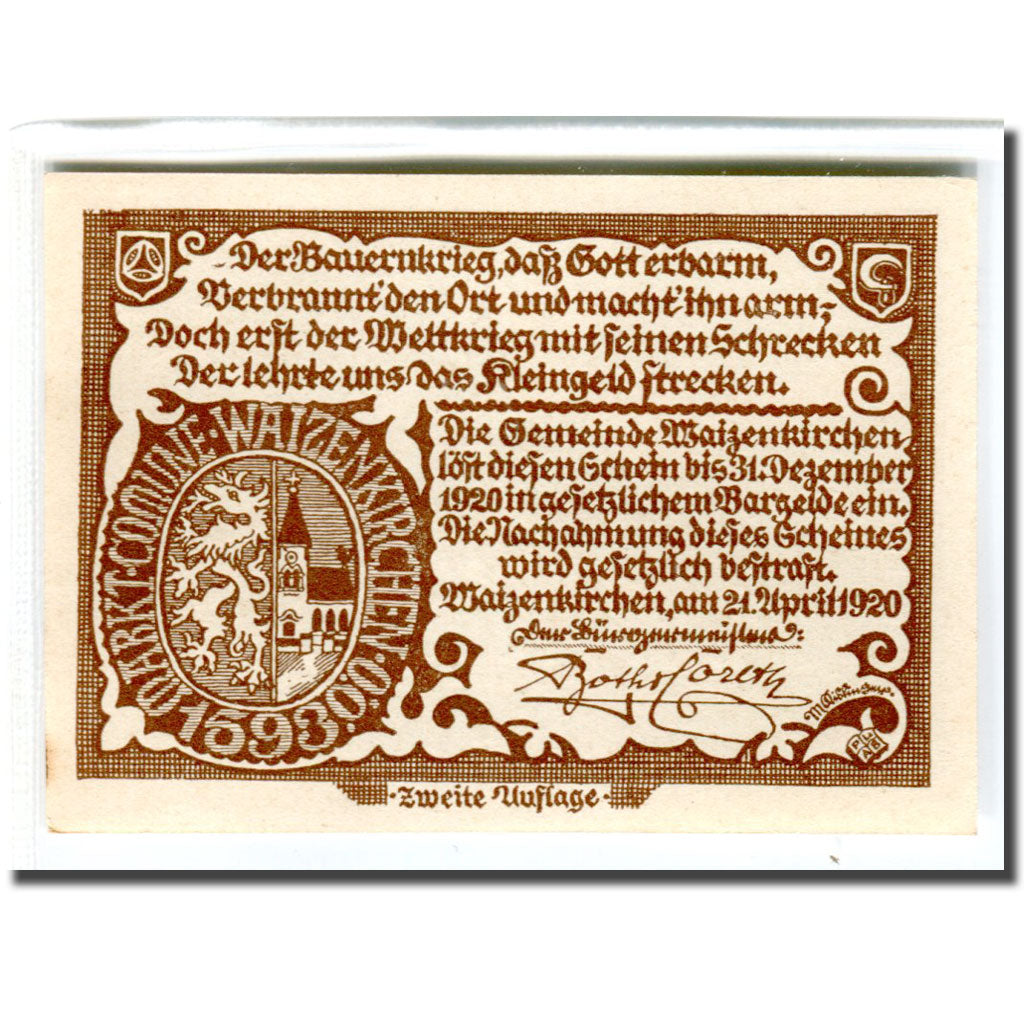 Der Bauernkrieg, daß Gott erbarm,
Verbrannt' den Ort und macht' ihn arm;
Doch erst der Weltkrieg mit seinen Schrecken
Der lehrte uns das Kleingeld strecken.
MARKT·COMUNE·WAIZENKIRCHEN·
1593
Die Gemeinde Waizenkirchen
löst diesen Schein bis 31. Dezember
1920 in gesetzlichem Bargelde ein.
Die Nachahmung dieses Scheines
wird gesetzlich bestraft.
Waizenkirchen, am 21. April 1920
Der Bürgermeister:
·Zweite Auflage·